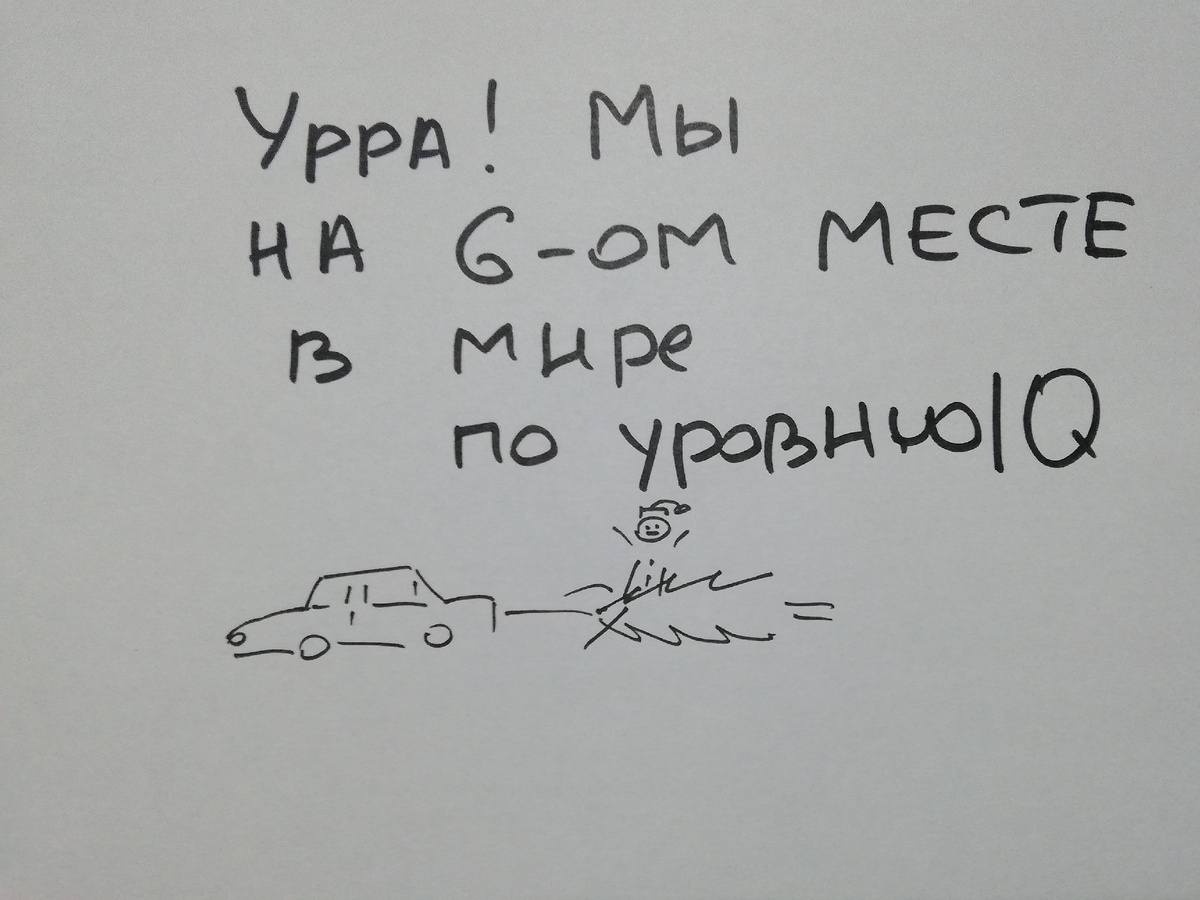 Урра! Мы
на 6-ом месте
в мире
по уровню IQ